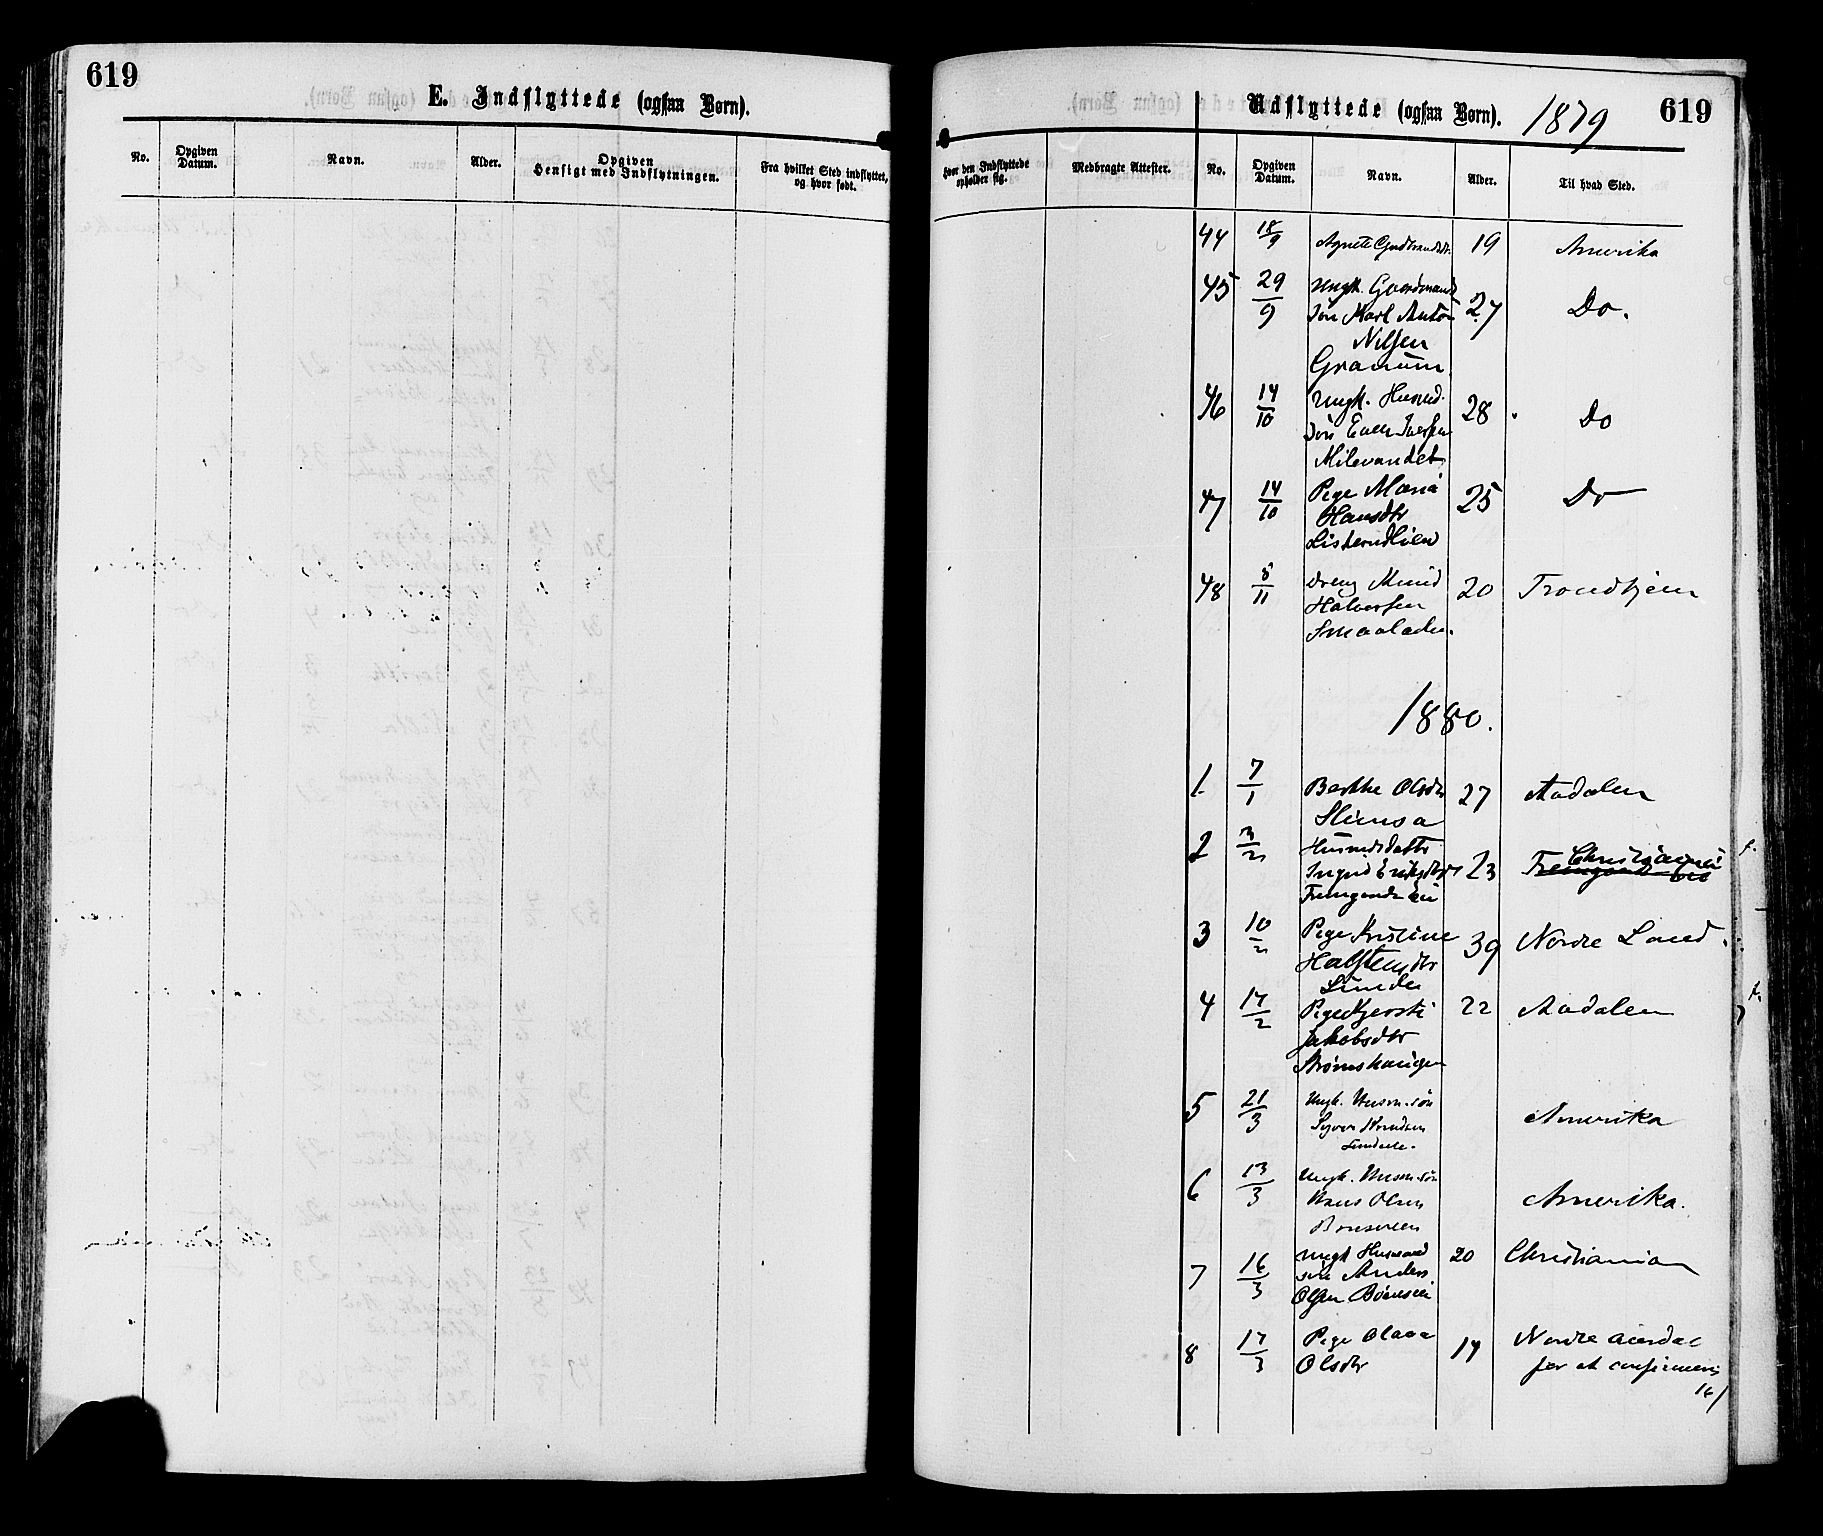 619
E. Indflyttede (ogsaa Børn).
No.
Opgiven Datum.
Navn.
Alder.
Opgiven Hensigt med Indflytningen.
Fra hvilket Sted indflyttet, og hvor født.
hvor den Indflyttede opholder sig.
Medbragte Attester.
Udflyttede (ogsaa Børn). 1879
619
No.
Opgiven Datum.
Navn.
Alder.
Til hvad Sted.
44 18/9 Agnete Gudbrandsdtr. 19 Amerika
45 29/9 Ungk. Gaardmand
Søn Karl Anton 27 Do.
Nilsen
Granum
46 14/10 Ungk. Husmd. 28 Do
Søn Even Iversen
Milevandet
47 14/10 Pige Maria 25 Do
Hansdtr
Listerudlien
48 8/11 Dreng Knud 20 Trondhjem
Halvorsen
Smaaladen.
1880.
1 7/1 Berthe Olsdtr 27 Aadalen
Slimsa
2 3/2 Husmdsdattr Christiania
Ingrid Eriksdtr 23
3 10/2 Pige Kristine 39 Nordre Land.
Halstensdtr
Lunder
4 17/2 Pige Kjersti 22 Aadalen
Jakobsdtr
Strømshaugen
5 21/3 Ungk. Husm.søn Amerika
Syver Knudsen
6 13/3 Ungk. Husm.søn
Hans Olsen Amerika.
7 16/3 Ungk Husmand 20 Christiania
søn Anders
Olsen
8 17/3 Pige Olava 17 Nordre Aurdal
Olsdtr for at confirmeres
16/